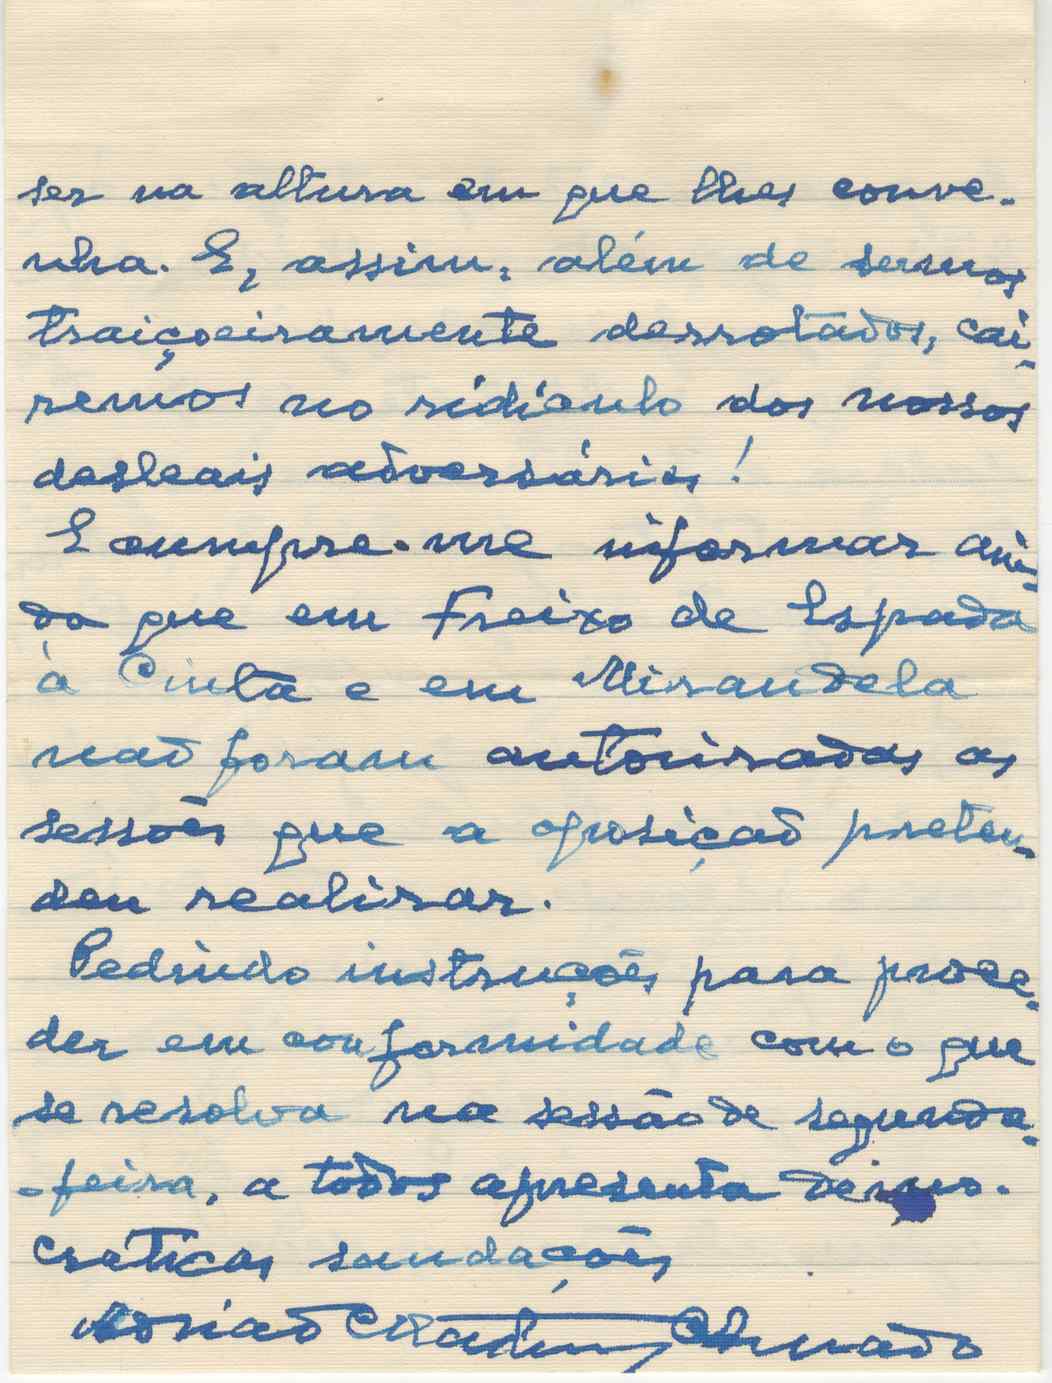 ser na altura em que lhes conve-
nha. E, assim, além de sermos
traiçoeiramente derrotados, cai-
remos no ridiculo dos nossos
desleais adversários!
E cumpre-me informar ain-
da que em Freixo de Espada
à Cinta e em Mirandela
não foram autorisadas as
sessões que a oposição preten-
deu realisar.
Pedindo instruções para proce-
der em conformidade com o que
se resolva na sessão de segunda-
-feira, a todos apresenta demo-
craticas saudações
Amado